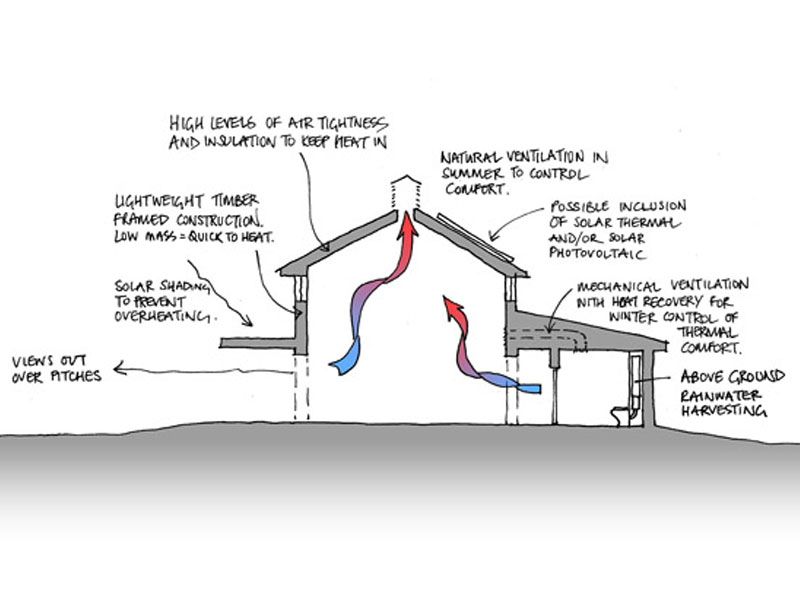 HIGH LEVELS OF AIR TIGHTNESS
AND INSULATION TO KEEP HEAT IN
NATURAL VENTILATION IN
SUMMER TO CONTROL
COMFORT.
LIGHTWEIGHT TIMBER
FRAMED CONSTRUCTION.
LOW MASS = QUICK TO HEAT.
POSSIBLE INCLUSION
OF SOLAR THERMAL
AND/OR SOLAR
PHOTOVOLTAIC
SOLAR SHADING
TO PREVENT
OVERHEATING.
MECHANICAL VENTILATION
WITH HEAT RECOVERY FOR
WINTER CONTROL OF
THERMAL
COMFORT.
VIEWS OUT
OVER PITCHES
ABOVE GROUND
RAINWATER
HARVESTING